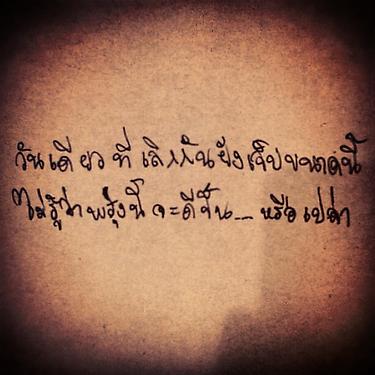 วันเดียวที่เลิกกันยังเจ็บขนาดนี้
ไม่รู้ว่าพรุ่งนี้จะดีขึ้น... หรือเปล่า